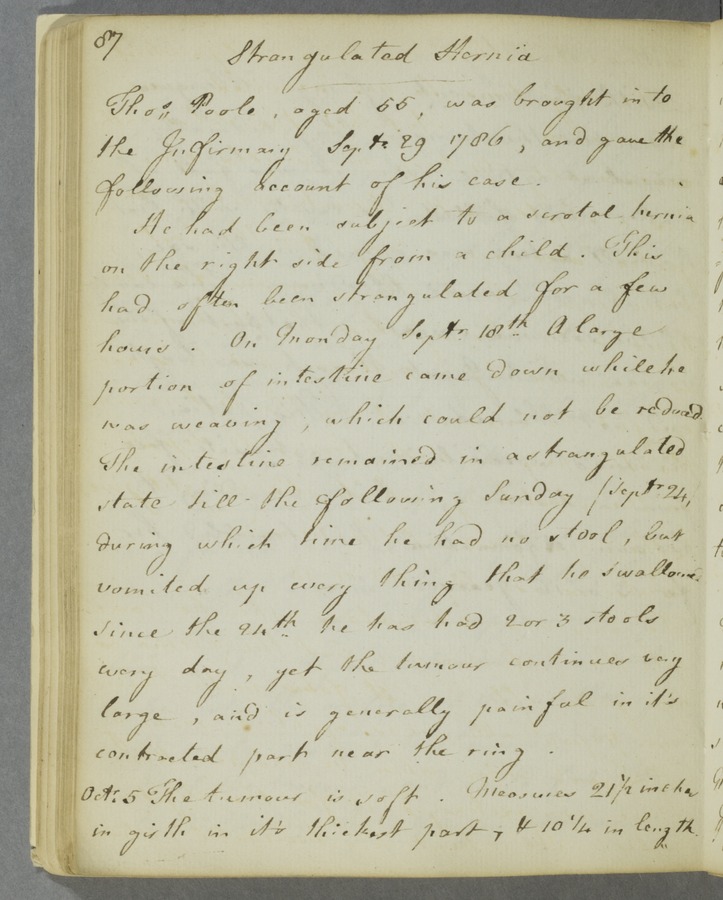 87
Strangulated Hernia
Thos. Poole, aged 55, was brought into
the Infirmary Septr 29 1786, and gave the
following account of his case.
He had been subject to a scrotal hernia
on the right side from a child. This
had often been strangulated for a few
hours. On Monday Septr. 18th A large
portion of intestine came down while he
was weaving, which could not be reduced.
The intestine remained in a strangulated
state till the following Sunday (Septr. 24,
during which time he had no stool, but
vomited up every thing that he swallowed.
Since the 24th he has had 2 or 3 stools
every day, yet the tumour continues very
large, and is generally painful in it's
contracted part near the ring.
Octr. 5 The tumour is soft. Measures 21 1/2 inches
in girth in it's thickest part, & 10 1/4 in length.